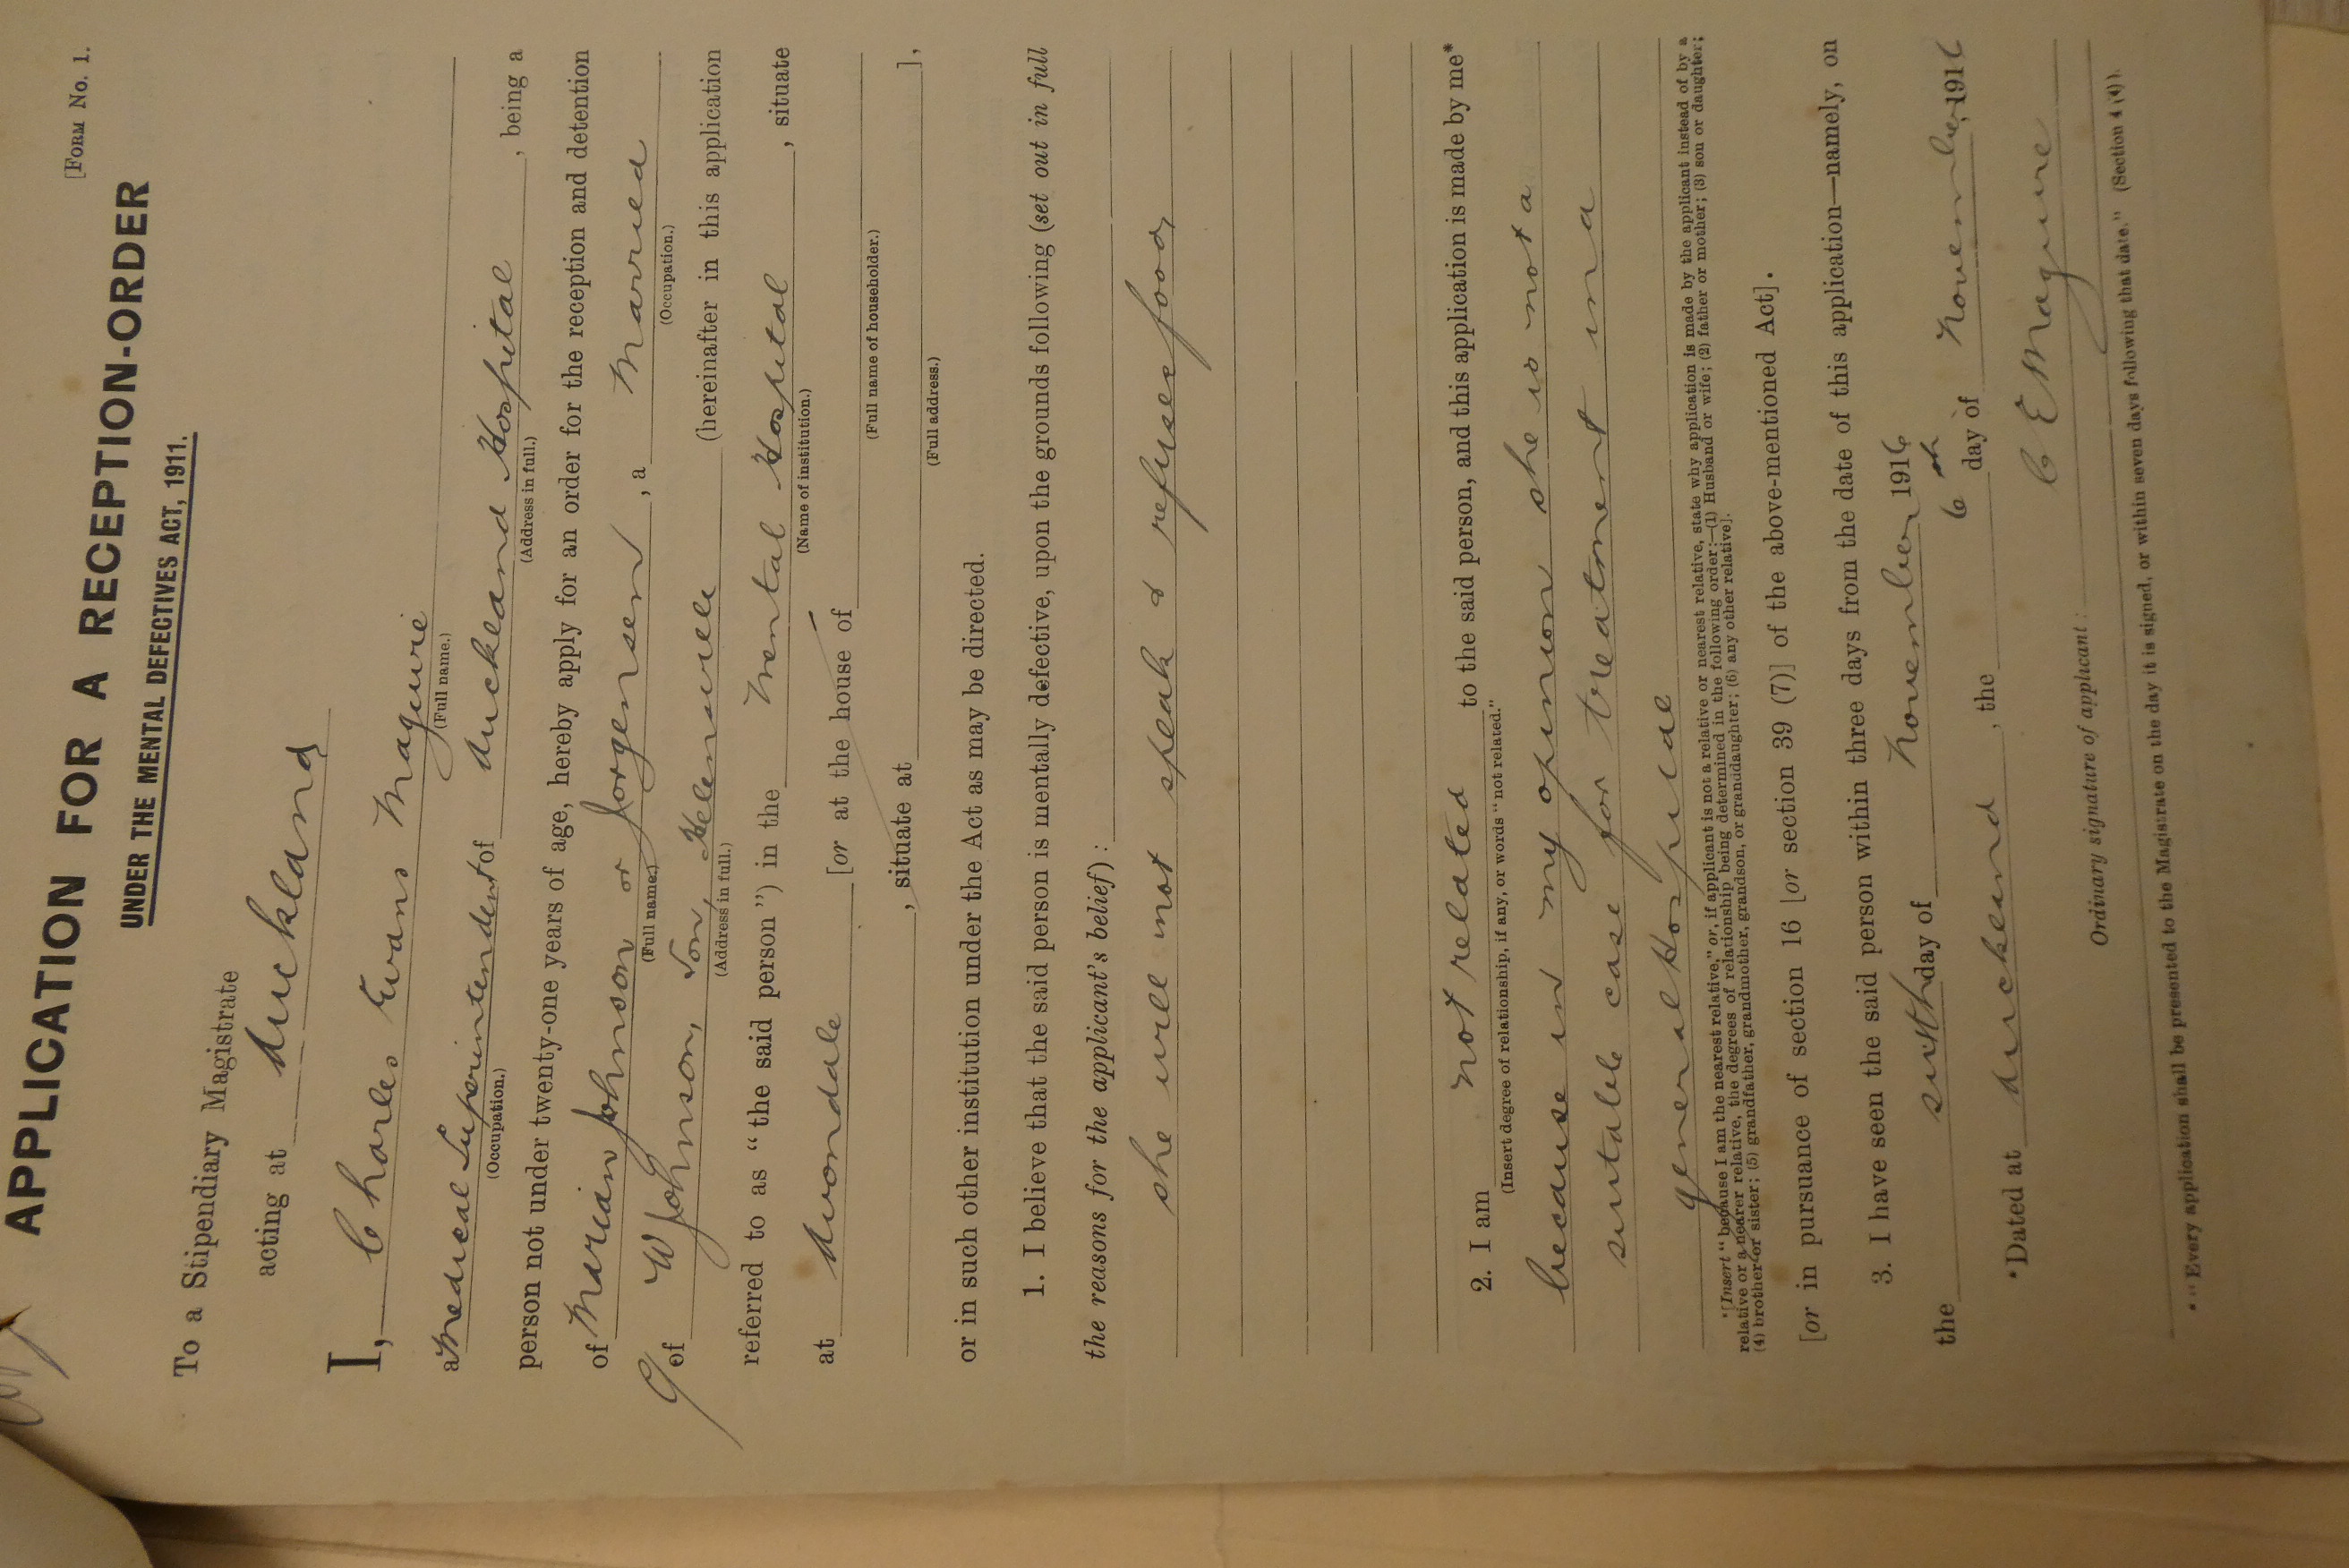 [FORM No. 1.
APPLICATION FOR A RECEPTION-ORDER
UNDER THE MENTAL DEFECTIVES ACT, 1911.
To a Stipendiary Magistrate
acting at Auckland
I, Charles Evans Maguire
(Full name.)
a Medical Superintendent of Auckland Hospital, being a
(Occupation.) (Address in full.)
person not under twenty-one years of age, hereby apply for an order for the reception and detention
of Marian Johnson or Jorgensen, a Married
(Full name.) (Occupation.)
of W Johnson, Helensville (hereinafter in this application
(Address in full.)
referred to as "the said person") in the Mental Hospital, situate
(Name of institution.)
at Avondale [or at the house of
(Full name of householder.)
, situate at ],
(Full address.)
or in such other institution under the Act as may be directed.
1. I believe that the said person is mentally defective, upon the grounds following (set out in full
the reasons for the applicant's belief) :
she will not speak & refuses food
2. I am not related to the said person, and this application is made by me*
(Insert degree of relationship, if any, or words "not related."
because in my opinion she is not a
suitable case for treatment in a
general Hospital
*[Insert "because I am the nearest relative," or, if applicant is not a relative or nearest relative, state why application is made by the applicant instead of by a
relative or a nearer relative, the degrees of relationship being determined in the following order:—(1) Husband or wife; (2) father or mother; (3) son or daughter;
(4) brother or sister; (5) grandfather, grandmother, grandson, or granddaughter; (6) any other relative].
[or in pursuance of section 16 [or section 39 (7)] of the above-mentioned Act].
3. I have seen the said person within three days from the date of this application—namely, on
the sixth day of November 1916
*Dated at Auckland, the 6th day of November, 1916
Ordinary signature of applicant : C E Maguire
* "Every application shall be presented to the Magistrate on the day it is signed, or within seven days following that date." (Section 4 (4)).